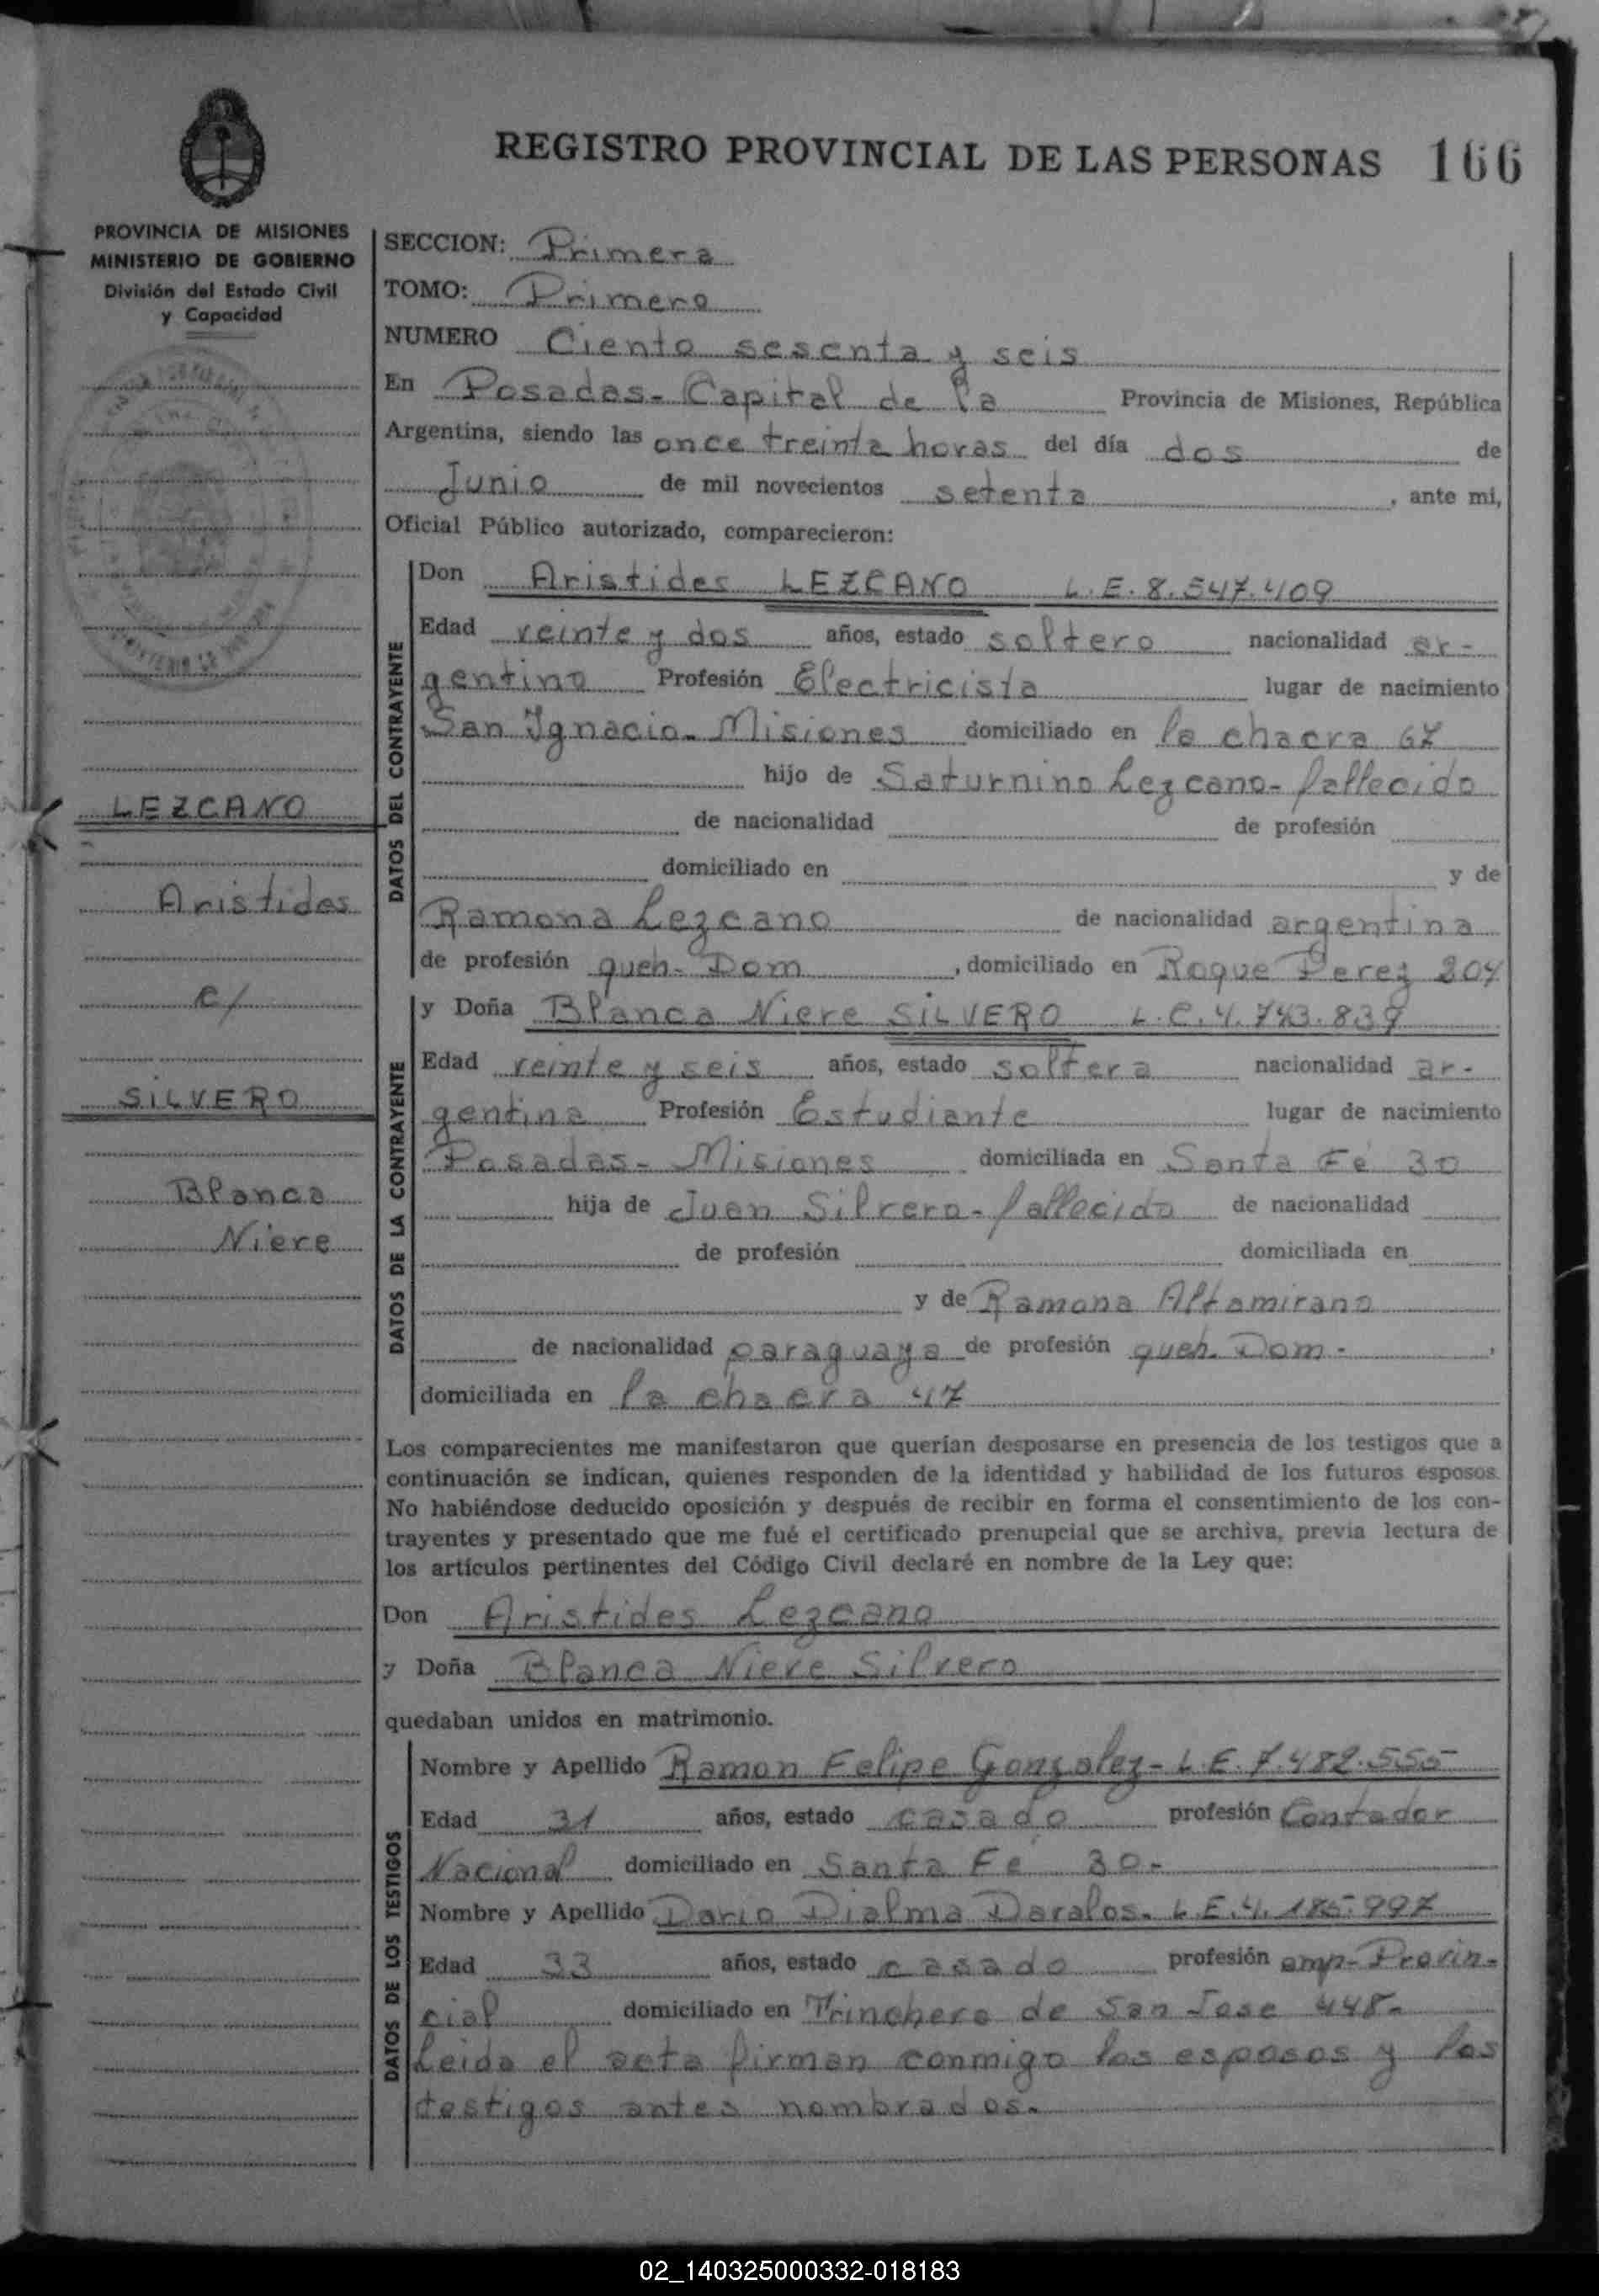 REGISTRO PROVINCIAL DE LAS PERSONAS 166
PROVINCIA DE MISIONES
MINISTERIO DE GOBIERNO
División del Estado Civil
y Capacidad
LEZCANO
Aristides
c/
SILVERO
Blanca
Nieve
SECCION: Primera
TOMO: Primero
NUMERO Ciento sesenta y seis
En Posadas- Capital de la Provincia de Misiones, República
Argentina, siendo las once treinta horas del día dos de
Junio de mil novecientos setenta, ante mi,
Oficial Público autorizado, comparecieron:
DATOS DEL CONTRAYENTE
Don Aristides LEZCANO L.E. 8.547.409
Edad veinte y dos años, estado soltero nacionalidad ar-
gentino Profesión Electricista lugar de nacimiento
San Ignacio- Misiones domiciliado en la chacra 67
hijo de Saturnino Lezcano- fallecido
de nacionalidad de profesión
domiciliado en y de
Ramona Lezcano de nacionalidad argentina
de profesión queh- Dom, domiciliado en Roque Perez 204
DATOS DE LA CONTRAYENTE
y Doña Blanca Nieve SILVERO L.C. 4.743.839
Edad veinte y seis años, estado soltera nacionalidad ar-
gentina Profesión Estudiante lugar de nacimiento
Posadas- Misiones domiciliada en Santa Fé 30
hija de Juan Silvero- fallecido de nacionalidad
de profesión domiciliada en
y de Ramona Altamirano
de nacionalidad paraguaya de profesión queh. Dom.,
domiciliada en la chacra 47
Los comparecientes me manifestaron que querían desposarse en presencia de los testigos que a
continuación se indican, quienes responden de la identidad y habilidad de los futuros esposos.
No habiéndose deducido oposición y después de recibir en forma el consentimiento de los con-
trayentes y presentado que me fué el certificado prenupcial que se archiva, previa lectura de
los artículos pertinentes del Código Civil declaré en nombre de la Ley que:
Don Aristides Lezcano
y Doña Blanca Nieve Silvero
quedaban unidos en matrimonio.
DATOS DE LOS TESTIGOS
Nombre y Apellido Ramon Felipe Gonzalez- L.E. 7.482.555
Edad 31 años, estado casado profesión Contador
Nacional domiciliado en Santa Fé 30-
Nombre y Apellido Dario Dialma Daralos. L.E. 4.185.997
Edad 33 años, estado casado profesión emp- Provin-
cial domiciliado en Trinchera de San Jose 448-
Leida el acta firman conmigo los esposos y los
testigos antes nombrados.
02_140325000332-018183